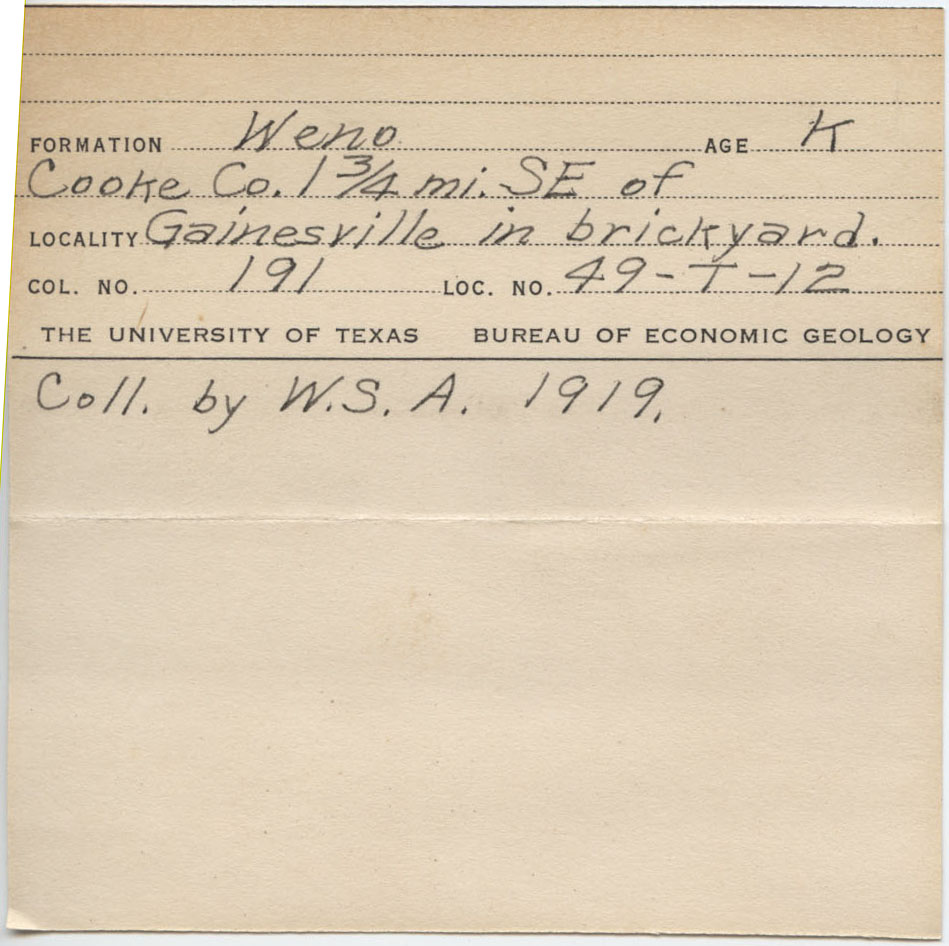 FORMATION Weno AGE K
Cooke Co. 1 3/4 mi. SE of
LOCALITY Gainesville in brickyard.
COL. NO. 191 LOC. NO. 49-T-12
THE UNIVERSITY OF TEXAS BUREAU OF ECONOMIC GEOLOGY
Coll. by W.S.A. 1919.